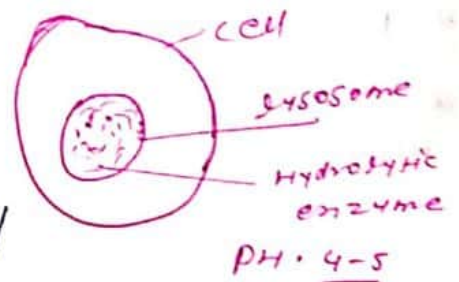 cell
Lysosome
Hydrolytic
enzyme
PH. 4-5